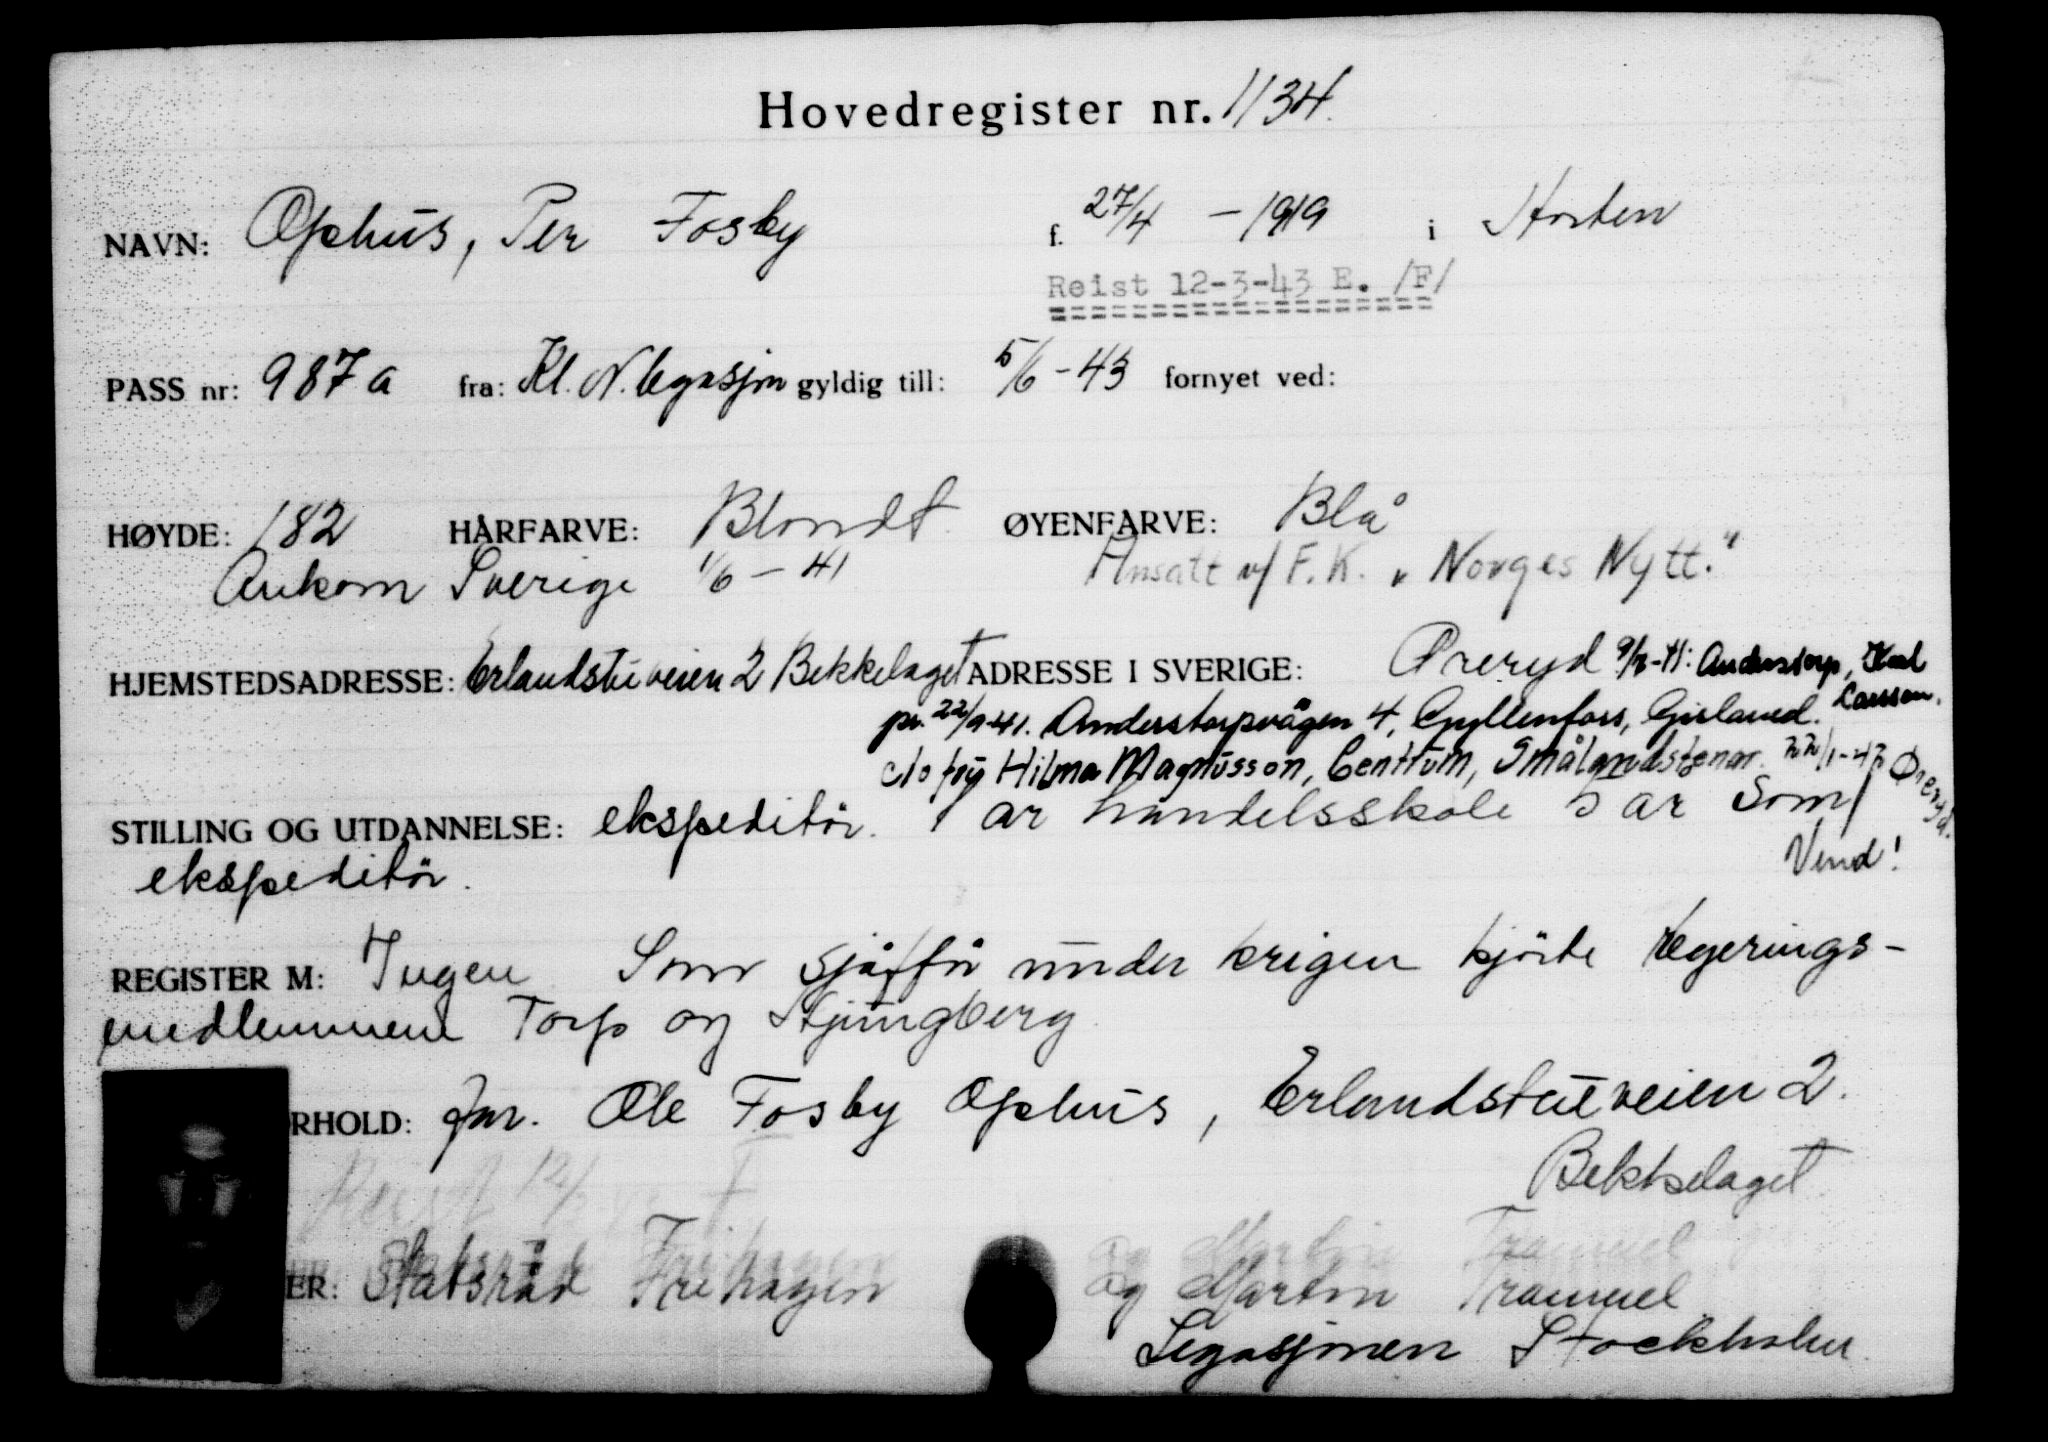 Hovedregister nr. 1134.
NAVN: Ophus, Per Fosby f. 27/4 - 1919 i Horten
Reist 12-3-43 E. /F/
PASS nr: 987 a fra: Kl. N. legasjon gyldig till: 5/6 - 43 fornyet ved:
HØYDE: 182 HÅRFARVE: Blondt ØYENFARVE: Blå
Ankom Sverige 1/6 - 41 Ansatt v/ F.K. "Norges Nytt."
HJEMSTEDSADRESSE: Erlandstuveien 2 Bekkelaget ADRESSE I SVERIGE: Øreryd Anderstorp, Karl Larsson.
pr. 22/9-41. Anderstorpvägen 4, Gyllenfors, Gislaved.
c/o Hilma Magnusson, Centrum, Smålandstenar. 22/1-42 Øreryd.
STILLING OG UTDANNELSE: ekspeditør. 1 år handelsskole 5 år som
ekspeditør. Vend!
REGISTER M: Ingen Som sjåffør under krigen kjørte regjerings-
medlemmene Torp og Ljungberg
RHOLD: far. Ole Fosby Ophus, Erlandstuveien 2.
Bekkelaget
Reist 12/3
ER: Statsråd Frihagen og Martin Tranmæl
Legasjonen Stockholm